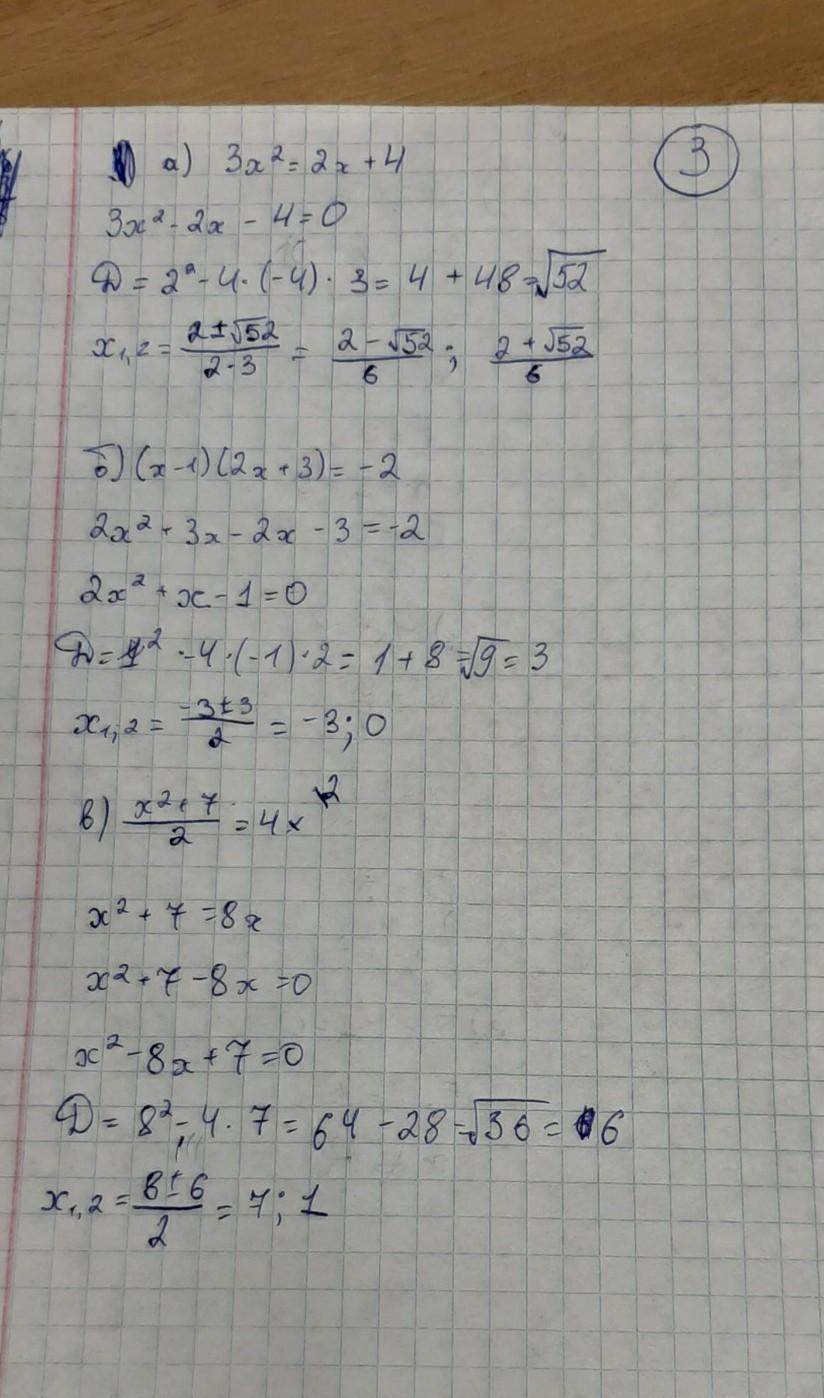 а) 3x² = 2x + 4
3
3x² - 2x - 4 = 0
D = 2² - 4 · (-4) · 3 = 4 + 48 = √52
x₁,₂ = (2 ± √52)/(2·3) = (2 - √52)/6 ; (2 + √52)/6
б) (x - 1)(2x + 3) = -2
2x² + 3x - 2x - 3 = -2
2x² + x - 1 = 0
D = 1² - 4 · (-1) · 2 = 1 + 8 = √9 = 3
x₁,₂ = (-3 ± 3)/2 = -3; 0
в) (x² + 7)/2 = 4x |·2
x² + 7 = 8x
x² + 7 - 8x = 0
x² - 8x + 7 = 0
D = 8² - 4 · 7 = 64 - 28 = √36 = 6
x₁,₂ = (8 ± 6)/2 = 7; 1